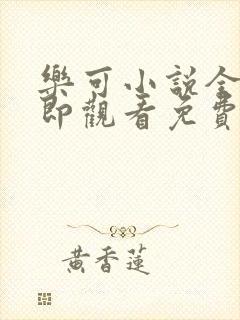 樂可小說全
即觀看免費
黃香蓮